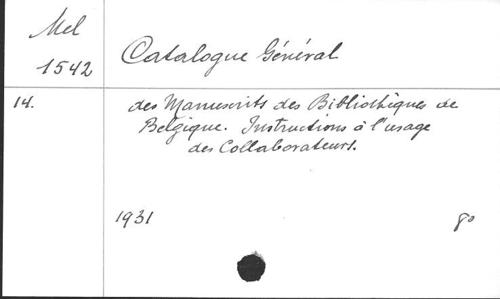 Mel
1542
Catalogue Général
14.
des Manuscrits des Bibliothèques de
Belgique. Instructions à l'usage
des Collaborateurs.
1931
8º